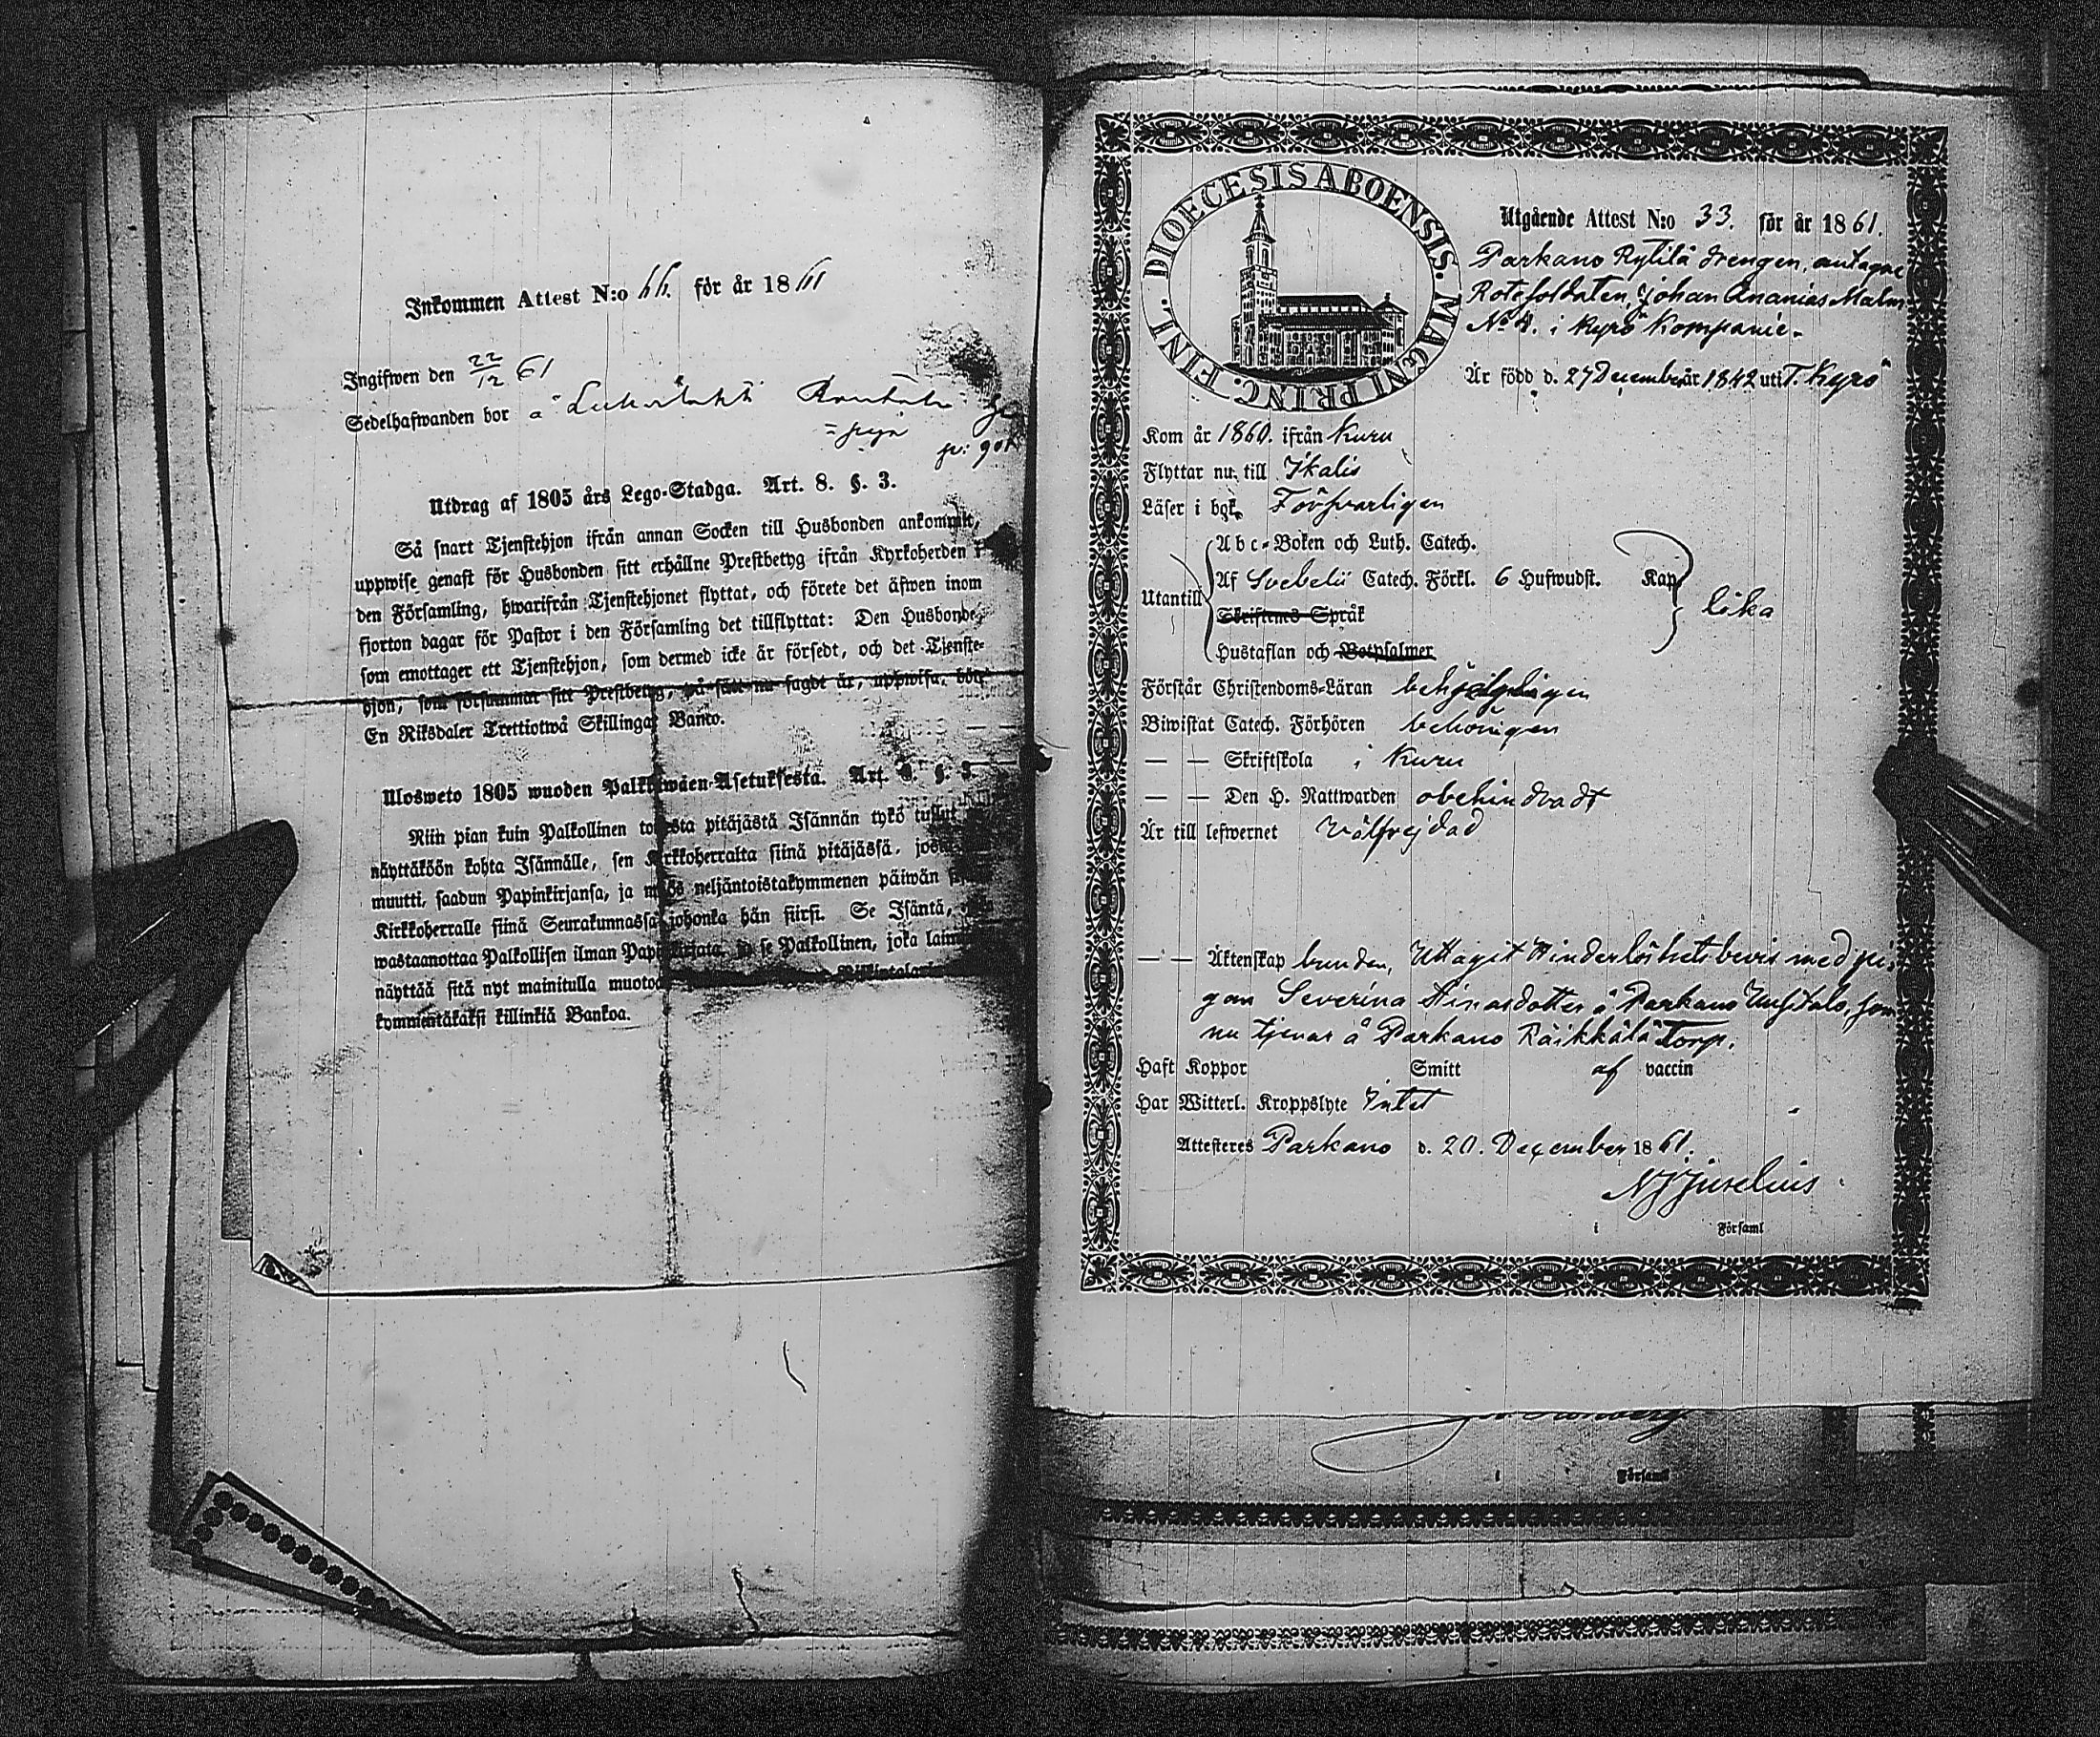 Inkommen Attest N:o 66. för år 1861
Ingifwen den 22/12 61
Sedelhafwanden bor å
Utdrag af 1805 års Lego-Stadga. Art. 8. §. 3.
Så snart Tjenstehjon ifrån annan Socken till Husbonden ankommit,
uppwise genast för Husbonden sitt erhållne Prestbetyg ifrån Kyrkoherden i
den Församling, hwarifrån Tjenstehjonet flyttat, och förete det äfwen inom
fjorton dagar för Pastor i den Församling det tillflyttat: Den Husbonde,
som emottager ett Tjenstehjon, som dermed icke är försedt, och det Tjenste-
hjon, som försummar sitt Prestbetyg, på sätt nu sagdt är, uppwisa, böte
En Riksdaler Trettiotwå Skillingar Banco.
Ulosweto 1805 wuoden Palkkawäen-Asetuksesta. Art. 8. §. 3
Niin pian kuin Palkollinen toisesta pitäjästä Isännän tykö tullut
näyttäköön kohta Isännälle, sen Kirkkoherralta siinä pitäjässä, josta
muutti, saadun Papinkirjansa, ja myös neljäntoistakymmenen päiwän
Kirkkoherralle siinä Seurakunnassa johonka hän siirsi. Se Isäntä,
wastaanottaa Palkollisen ilman Papinkirjata, ja se Palkollinen, joka
näyttää sitä nyt mainitulla muotoa
kymmentäkaksi killinkiä Bankoa.
DIOECESIS ABOENSIS. MAGNI PRINC. FINL.
Utgående Attest N:o 33. för år 1861.
Parkano Rytilä drengen, antagne
Rotesoldaten, Johan Ananias Malm
No 4. i Kyrö Kompanie.
Är född d. 27 December år 1842 uti T. Kyrö
Kom år 1860. ifrån Kuru
Flyttar nu till Ikalis
Läser i bok Försvarligen
Utantill
Abc-Boken och Luth. Catech.
Af Svebelii Catech. Förkl. 6 Hufwudst. Kap
Skriftenes Språk
Hustaflan och Botpsalmer
lika
Förstår Christendoms-Läran behjelpligen
Biwistat Catech. Förhören behörigen
— — Skriftskola i Kuru
— — Den H. Nattwarden obehindradt
Är till lefwernet Välfrejdad
— — Äktenskap bunden, Uttagit Hinderlöshetsbevis med pi-
gan Severina Hinasdotter å Parkano Uusitalo, som
nu tjenar å Parkano Räikkälä Torp.
Haft Koppor Smitt af vaccin
Har Witterl. Kroppslyte Intet
Attesteres Parkano d. 20. December 1861.
NJJuselius
i Församl
i Församl